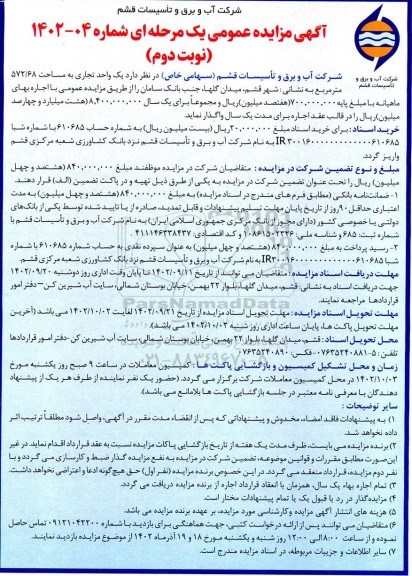 شرکت آب و برق و تأسیسات قشم
آگهی مزایده عمومی یک مرحله ای شماره ۰۴-۱۴۰۲
(نوبت دوم)
شرکت آب و برق و تأسیسات قشم
شرکت آب و برق و تأسیسات قشم (سهامی خاص) در نظر دارد یک واحد تجاری به مساحت ۵۷۲/۶۸
مترمربع به نشانی: شهر قشم، میدان گلها، جنب بانک سامان را از طریق مزایده عمومی با اجاره بهای
ماهیانه با مبلغ پایه ۷۰۰,۰۰۰,۰۰۰(هفتصد میلیون)ریال و مجموعاً برای یک سال ۸,۴۰۰,۰۰۰,۰۰۰(هشت میلیارد و چهارصد
میلیون)ریال را در قالب عقد اجاره برای مدت یک سال واگذار نماید.
خرید اسناد: برای خرید اسناد مبلغ ۲۰,۰۰۰,۰۰۰ریال (بیست میلیون ریال) به شماره حساب ۶۱۰۶۸۵ با شماره شبا
به نام شرکت آب و برق و تأسیسات قشم نزد بانک کشاورزی شعبه مرکزی قشم
واریز گردد.
مبلغ و نوع تضمین شرکت در مزایده: متقاضیان شرکت در مزایده موظفند مبلغ ۸۴۰,۰۰۰,۰۰۰ (هشتصد و چهل
میلیون) ریال را تحت عنوان تضمین شرکت در مزایده به یکی از طرق ذیل تهیه و در پاکت تضمین (الف) قرار دهند.
۱- ضمانت‌نامه بانکی (مطابق فرم های مندرج در اسناد مزایده) به مبلغ ۸۴۰,۰۰۰,۰۰۰(هشتصد و چهل میلیون) به مدت
اعتباری حداقل ۹۰روز از تاریخ پایان مهلت تسلیم پیشنهادات و قابل تمدید، صادر از یا تایید شده توسط یکی از بانک‌های
دولتی یا خصوصی کشور (دارای مجوز از بانک مرکزی جمهوری اسلامی ایران) به نام شرکت آب و برق و تأسیسات قشم با
شماره ثبت: ۶۸۵ و شناسه ملی: ۱۰۸۶۱۵۰۲۳۳۶ و کد اقتصادی: ۴۱۱۱۴۶۳۳۸۴۳۷.
۲- رسید پرداخت به مبلغ ۸۴۰,۰۰۰,۰۰۰ (هشتصد و چهل میلیون) به عنوان سپرده نقدی به حساب شماره ۶۱۰۶۸۵ با شماره
به نام شرکت آب و برق و تأسیسات قشم نزد بانک کشاورزی شعبه مرکزی قشم.
مهلت دریافت اسناد مزایده: متقاضیان می توانند از تاریخ ۱۴۰۲/۰۹/۱۱ تا پایان وقت اداری روز دوشنبه ۱۴۰۲/۰۹/۲۰
جهت دریافت اسناد به نشانی: قشم، میدان گلها، بلوار ۲۲ بهمن، خیابان بوستان شمالی، سایت آب شیرین کن-دفتر امور
قراردادها مراجعه نمایند.
مهلت تحویل اسناد مزایده: مهلت تحویل اسناد مزایده از تاریخ ۱۴۰۲/۰۹/۲۱ لغایت ۱۴۰۲/۱۰/۰۲ می باشد (آخرین
مهلت تحویل پاکت ها، پایان ساعت اداری روز شنبه ۱۴۰۲/۱۰/۰۲ می باشد).
محل تحویل اسناد: قشم، میدان گلها، بلوار ۲۲ بهمن، خیابان بوستان شمالی، سایت آب شیرین کن-دفتر امور قراردادها
تلفن: ۵-۰۷۶۳۵۲۴۰۸۸۱-فکس: ۰۷۶۳۵۲۴۰۸۹۰
زمان و محل تشکیل کمیسیون و بازگشایی پاکت ها: کمیسیون معاملات در ساعت ۹ صبح روز یکشنبه مورخ
۱۴۰۲/۱۰/۰۳ در محل کمیسیون معاملات شرکت برگزار می گردد. (حضور یک نفر نماینده از طرف هر یک از پیشنهاد
دهندگان با معرفی نامه معتبر در جلسه بازگشایی پاکت ها بلامانع می باشد)
سایر توضیحات:
۱) به پیشنهادات فاقد امضاء، مخدوش و پیشنهاداتی که پس از انقضاء مدت مقرر در آگهی، واصل شود مطلقاً ترتیب اثر
داده نخواهد شد.
۲) برنده مزایده می بایست، ظرف مدت یک هفته از تاریخ بازگشایی پاکات مزایده نسبت به عقد قرارداد اقدام نماید. در غیر
این‌صورت مطابق مقررات و قوانین موضوعه، تضمین شرکت در مزایده به نفع مزایده گذار ضبط و کارسازی می گردد و با
نفر دوم مزایده، قرارداد منعقد می گردد. در این خصوص برنده مزایده (نفر اول) حق هیچ‌گونه ادعا و اعتراضی نخواهد داشت.
۳) تمام اجاره بهاء یک سال، همزمان با انعقاد قرارداد اجاره از برنده مزایده دریافت می گردد.
۴) مزایده‌گذار در رد یا قبول یک یا تمام پیشنهادات مختار است.
۵) هزینه های انتشار آگهی مزایده و کارشناسی مورد مزایده، بر عهده برنده مزایده می باشد.
۶) متقاضیان می توانند پس از ارائه درخواست کتبی، جهت هماهنگی برای بازدید با شماره ۰۹۱۲۱۰۴۲۲۰۰ تماس حاصل
نموده و از ساعت ۸:۰۰الی ۱۲:۰۰ روز شنبه و یکشنبه مورخ ۱۸ و ۱۹ آذرماه ۱۴۰۲ از موضوع مزایده بازدید نمایند.
۷) سایر اطلاعات و جزییات مربوطه، در اسناد مزایده مندرج است.